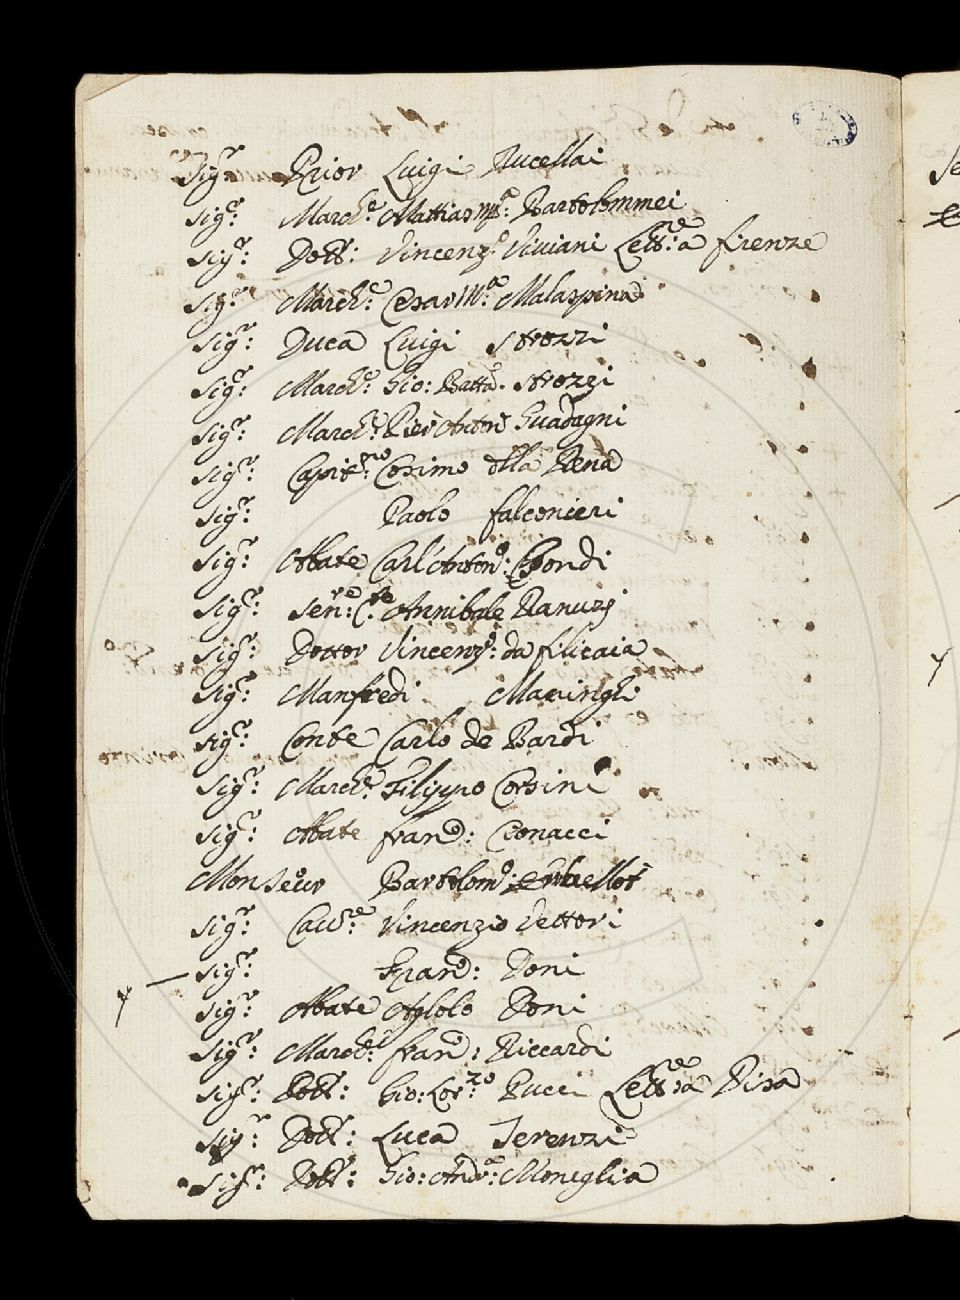 Sig.r Prior Luigi Rucellai
Sig.r March.e Mattias M.a: Bartolommei
Sig.r: Dott: Vincenz.o Viviani Lett.re: a firenze
Sig.r March.e Cesar M.a Malaspina
Sig.r: Duca Luigi Strozzi
Sig.r: March.e Gio: Batta. Strozzi
Sig.r: March.e Pier Anton.o Guadagni
Sig.r: Capit.no Cosimo della Rena
Sig.r: Paolo falconieri
Sig.r: Abate Carl'Anton.o: Gondi
Sig.r: Sen.re: C.te Annibale Ranuzj
Sig.r: Dottor Vincenz.o: da filicaia
Sig.r: Manfredi Macinghi
Sig.r: Conte Carlo de Bardi
Sig.r: March.e Filippo Corsini
Sig.r: Abate fran.o: Cionacci
Monseur Bartolom.o:
Sig.r: Cav.re Vincenzio Vettori
Sig.r: Fran.o: Doni
Sig.r: Abate Agnolo Doni
Sig.r: March.e fran.o: Riccardi
Sig.r: Dott: Gio: Lor.zo: Pucci Lett.re: a Pisa
Sig.r: Dott: Luca Terenzi
Sig.r: Dott: Gio: Andr.a: Moneglia